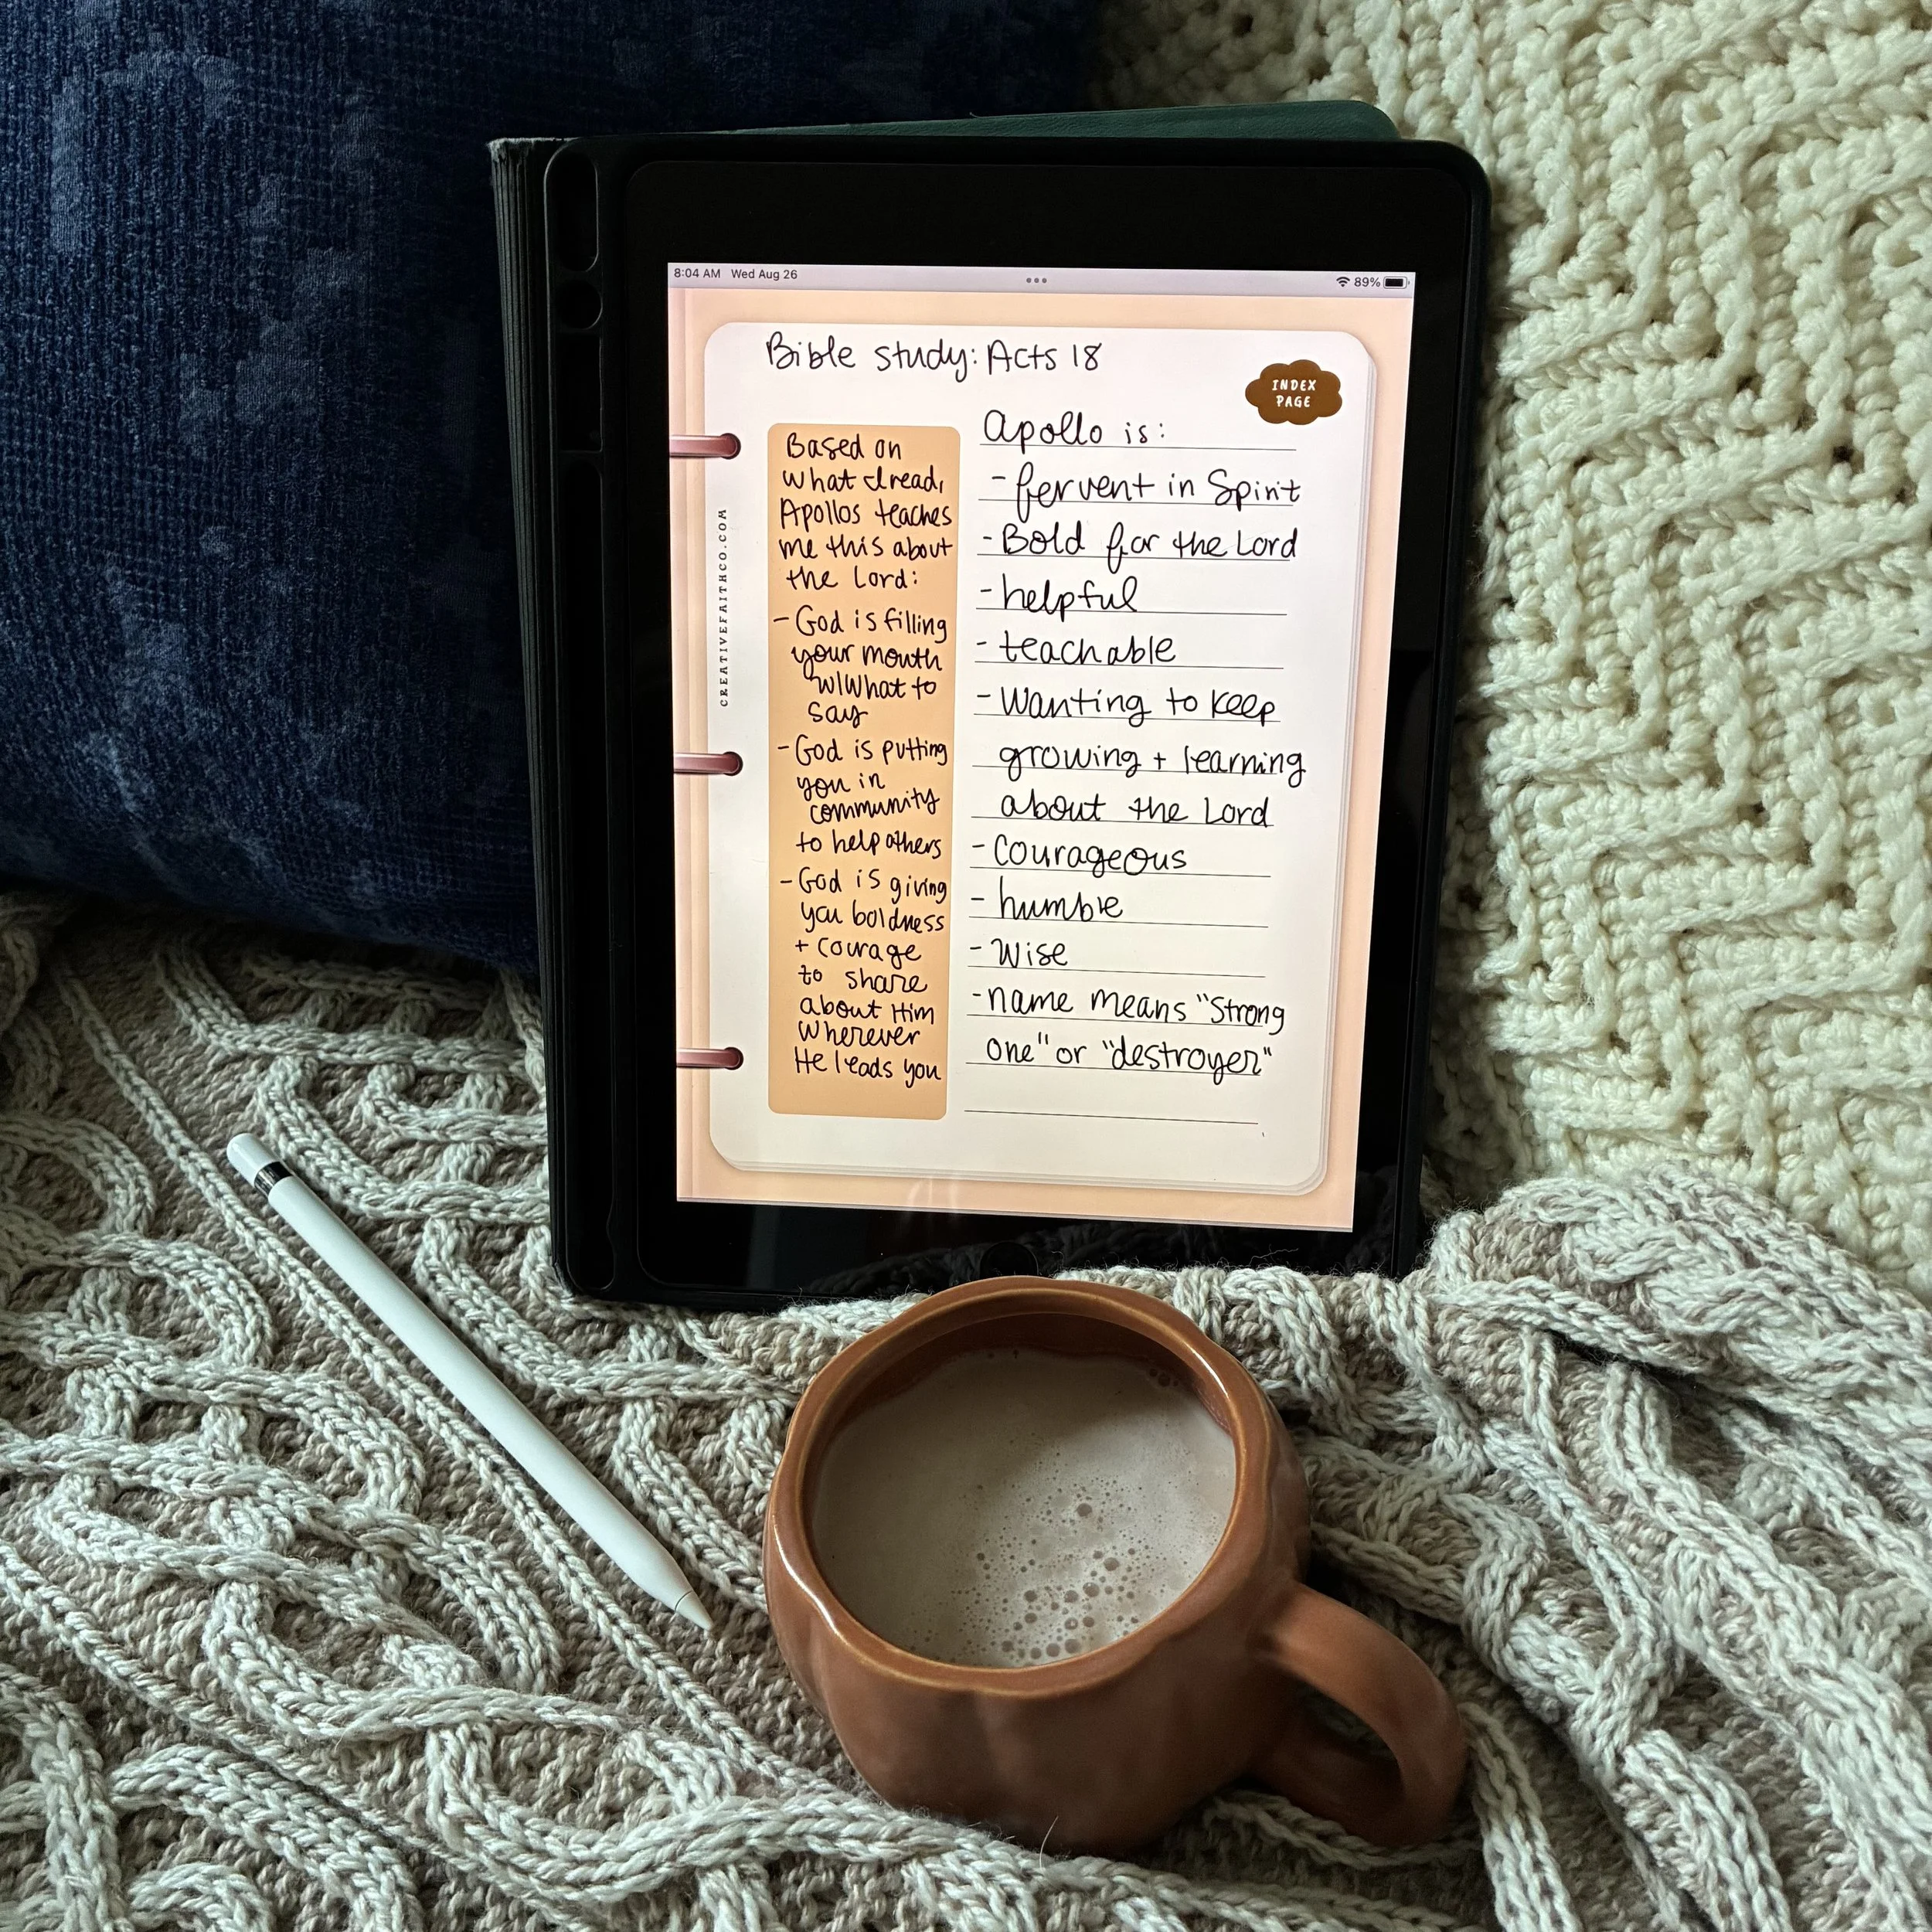 8:04 AM Wed Aug 26
89%
Bible study: Acts 18
INDEX
PAGE
CREATIVEFAITHCO.COM
Based on
what I read,
Apollos teaches
me this about
the Lord:
- God is filling
your mouth
w/what to
say
- God is putting
you in
community
to help others
- God is giving
you boldness
+ courage
to share
about Him
wherever
He leads you
Apollo is:
- fervent in Spirit
- Bold for the Lord
- helpful
- teachable
- Wanting to keep
growing + learning
about the Lord
- Courageous
- humble
- Wise
- name means "Strong
one" or "destroyer"